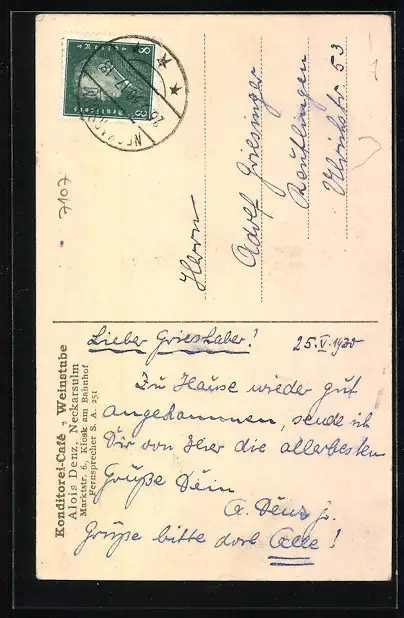 Konditorei-Café - Weinstube
Alois Denz, Neckarsulm
Marktstr. 6, Kiosk am Bahnhof
Fernsprecher S. A. 251
Lieber Grieshaber!
25.V.1930
Zu Hause wieder gut
angekommen, sende ich
Dir von Hier die allerbesten
Grüße Dein
A. Denz j.
Grüße bitte dort Alle!
Herrn
Adolf Griesinger
Reutlingen
Ulrichstr 53
7107
8 8
Deutsches